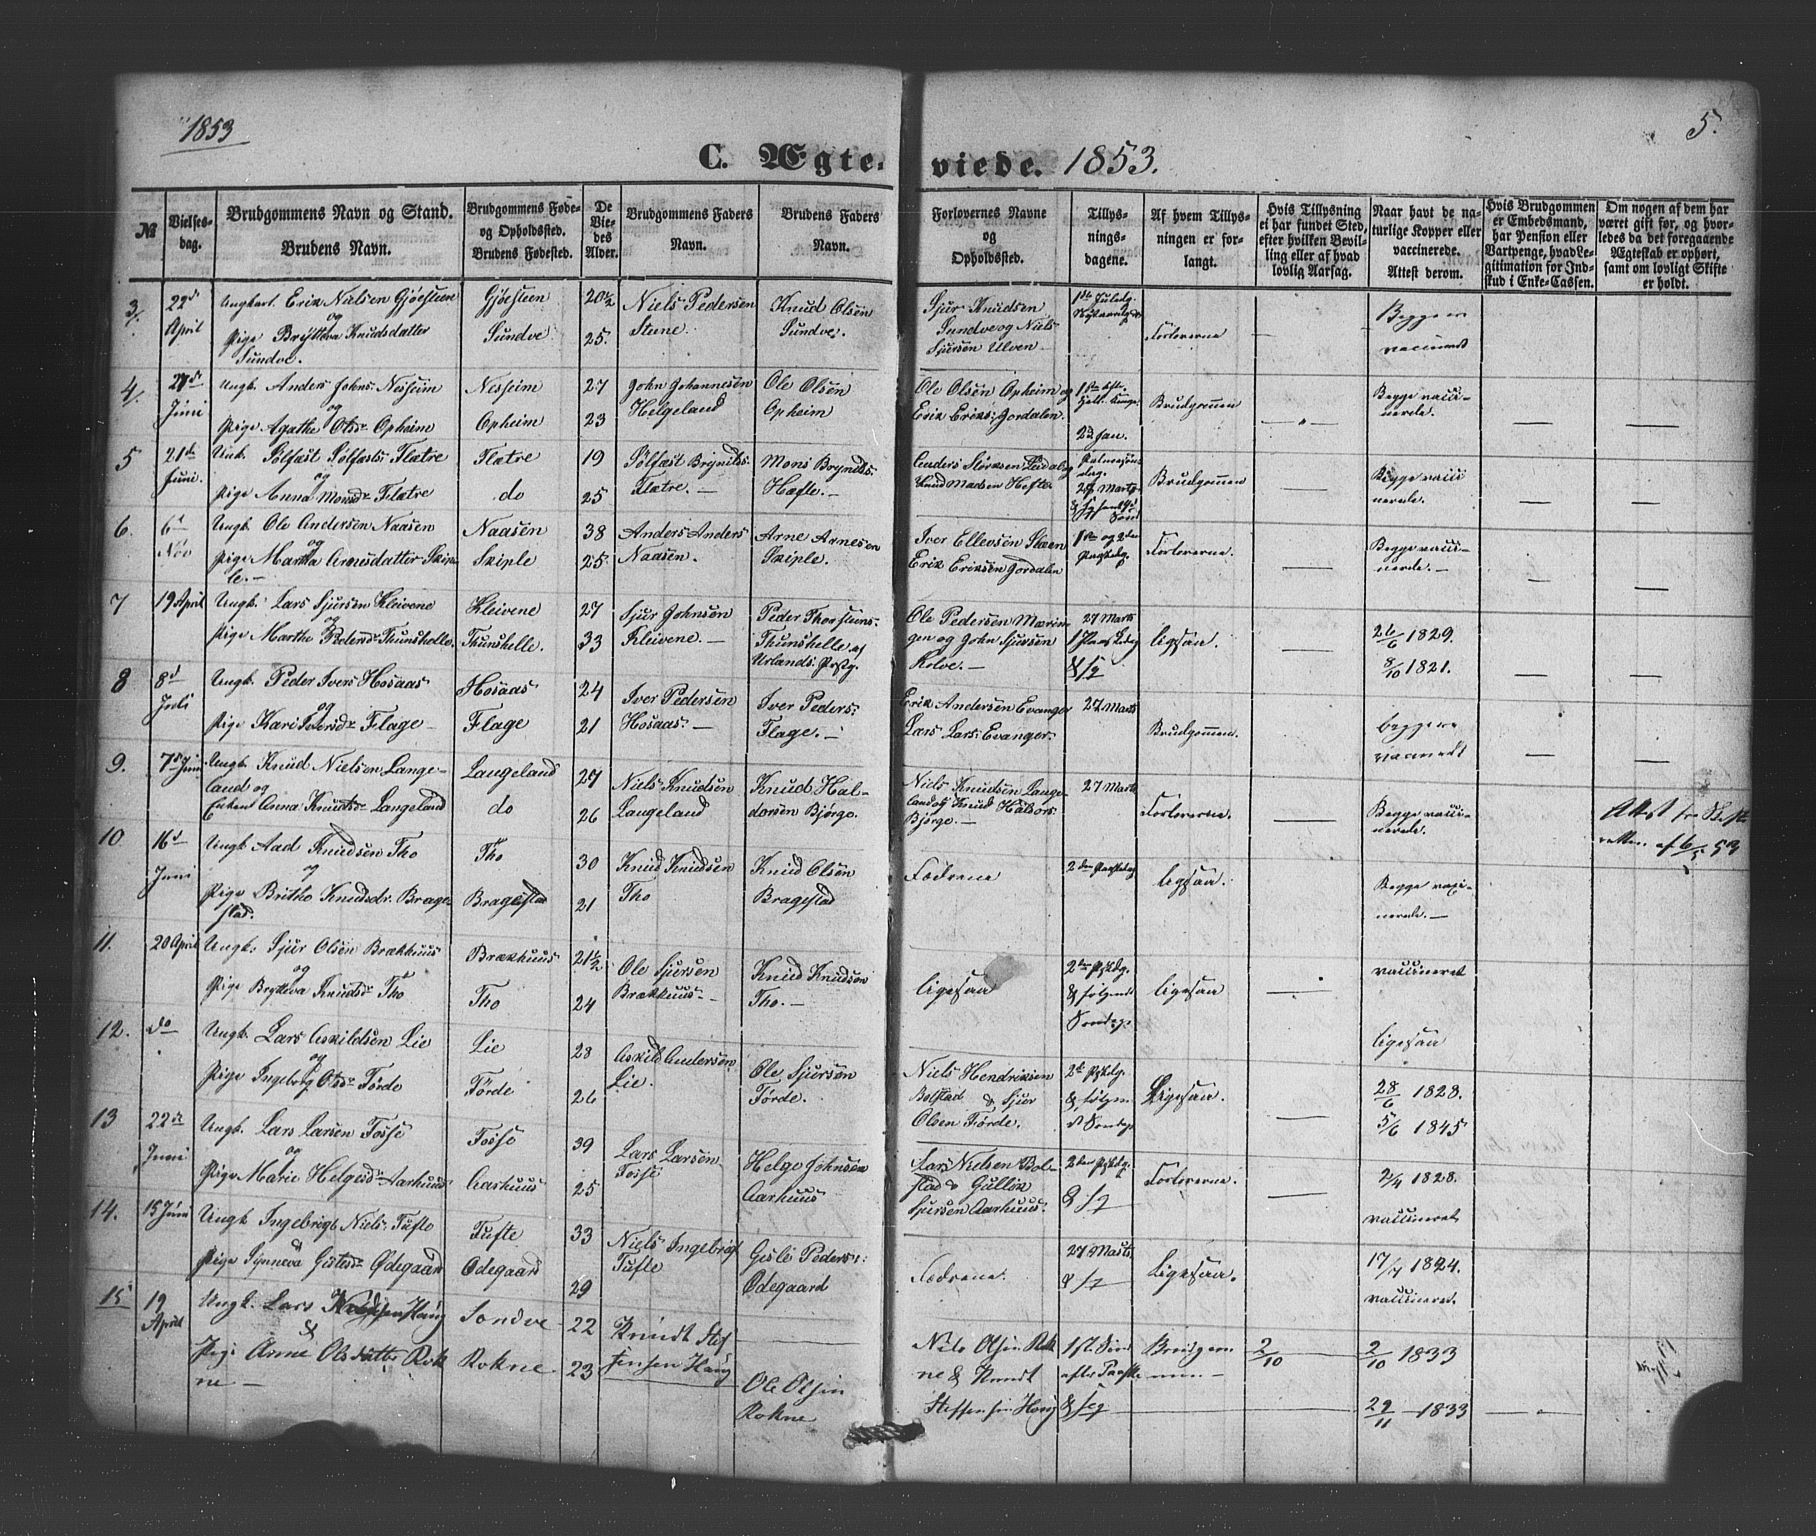 1853
5.
C. Ægteviede. 1853.
№
Vielsesdag.
Brudgommens Navn og Stand.
Brudens Navn.
Brudgommens Føde- og Opholdssted.
Brudens Fødested.
De Viedes Alder.
Brudgommens Faders Navn.
Brudens Faders Navn.
Forlovernes Navne og Opholdssted.
Tillysningsdagene.
Af hvem Tillysningen er forlangt.
Hvis Tillysning ei har fundet Sted, efter hvilken Bevilling eller af hvad lovlig Aarsag.
Naar havt de naturlige Kopper eller vaccinerede. Attest derom.
Hvis Brudgommen er Embedsmand, har Pension eller Vartpenge, hvad Legitimation for Indskud i Enke-Cassen.
Om nogen af dem har været gift før, og hvorledes da det foregaaende Ægteskab er ophørt, samt om lovligt Skifte er holdt.
3/. 22de April
Ungkarl. Erik Nielsen Gjøesteen
og
Pige Brytteva Knudsdatter Sundve.
Gjøesteen
Sundve
20½
25.
Niels Pedersen Stene
Knud Olsen Sundve.
Sjur Knudsen Sundve og Niels Sjursen Ulven
Forloverne
Begge ere vaccineret
4/. 21de Juni
Ungk. Anders Johns. Nesheim
og
Pige Agathe Olsdr Opheim
Nesheim
Opheim
27
23
John Johannesen Helgeland
Ole Olsen Opheim
Ole Olsen Opheim og Erik Eriks: Gordalen
23 Jan.
Brudgommen
Begge vaccinerede.
5 21de Juni.
Unk. Sølfæst Sølfæsts. Flætre
og
Pige Anna Monsdr Flætre
Flætre
do
19
25
Sølfæst Brynilds. Flætre.
Mons Brynilds. Hæfte.
Knud Madsen Hefte
Brudgommen
Begge vaccinerede.
6. 6d Nov
Ungk. Ole Andersen Naasen
og
Pige Martha Arnesdatter Skiple.
Naasen
Skiple
38
25
Anders Anders Naasen.
Arne Arnesen Skiple.
Iver Ellevsen Skeen
Erik Eriksen Gordalen
1ste og 2den Paaskedg.
Forloverne.
Begge vaccinerede.
7 19 April
Ungk. Lars Sjursen Kleivene
og
Pige Marthe Pedersdr Thunshelle.
Kleivene
Thunshelle.
27
33
Sjur Johnsen Kleivene.
Peder Thorsteins. Thunshelle af Urlands Præstg.
Ole Pedersen Mæringen og John Sjursen Rokve.
27 Marts
ligsaa.
26/6 1829.
8/10 1821.
8 8d Juli
Ungk. Peder Ivers Hosaas
og
Pige Kari Iversdr Flage
Hosaas
Flage
24
21
Iver Pedersen Hosaas.
Iver Peders. Flage.
Erik Andersen Evanger
Lars Lars. Evanger.
27 Marts
Brudgommen.
begge ere vaccineret
9. 7d Juni
Ungk. Knud Nielsen Langeland og
Enken Anna Knutsdr Langeland
Langeland
do
27
26
Niels Knudsen Langeland
Knud Haldorsen Bjørgo.
Niels Knudsen Langeland og Knud Haldors. Bjørgo.
27 Marts
Forloverne.
Begge vaccinerede.
Attest fra Skifteretten af 6/5 53
10 16d Juni
Ungk. Aad Knudsen Tho
og
Pige Britha Knudsdr. Bragestad.
Tho
Bragestad
30
21
Knud Knudsen Tho
Knud Olsen Bragestad
Fædrene
2den Paaskedag
ligsaa.
Begge vaccinerede.
11. 20 April
Ungk. Sjur Olsen Brækkuus
og
Pige Bryteva Knutsdr Tho
Brækkuus
Tho
21½
24
Ole Sjursen Brækkuus
Knud Knudsen Tho.
ligesaa
2den Pskdg. & følgende Søndage
ligesaa
vaccineret
ligesaa
12. do
Ungk. Lars Askildsen Lie
og
Pige Ingeborg Olsdr Førde
Lie
Førde
28
26
Askild Andersen Lie.
Ole Sjursen Førde.
Niels Hendriksen Bolstad & Sjur Olsen Førde.
Ligesaa.
28/6 1828.
5/6 1845
13 22de Juni
Ungk. Lars Larsen Fosse
og
Pige Marie Helgesdr Aarhuus
Fosse
Aarhuus
39
25
Lars Larsen Fosse
Helge Johnsen Aarhuus
Lars Nielsen Bolstad & Gullik Sjursen Aarhuus.
2den Pskdg.
Forloverne.
2/4 1828.
vaccineret
14. 15 Juni
Ungk. Ingebrigt Niels. Tufte
Pige Synneva Gislesdr Ødegaard
Tufte
Ødegaard
33
29
Niels Ingebrigt. Tufte
Gisle Peders: Ødegaard
Fædrene.
27 Marts
Ligesaa.
17/7 1824.
vaccineret.
15 19 April
Ungk. Lars Knudsen Haug
&
Pige Anne Olsdatter Rokne
Sondve
Rokne
22
23
Knudt Steffensen Haug
Ole Olsen Rokne
Nils Olsen Rokne & Knudt Steffensen Haug
1ste Søn. efter Paaske & flg
Brudgommen.
2/10
2/10 1833
29/11 1833